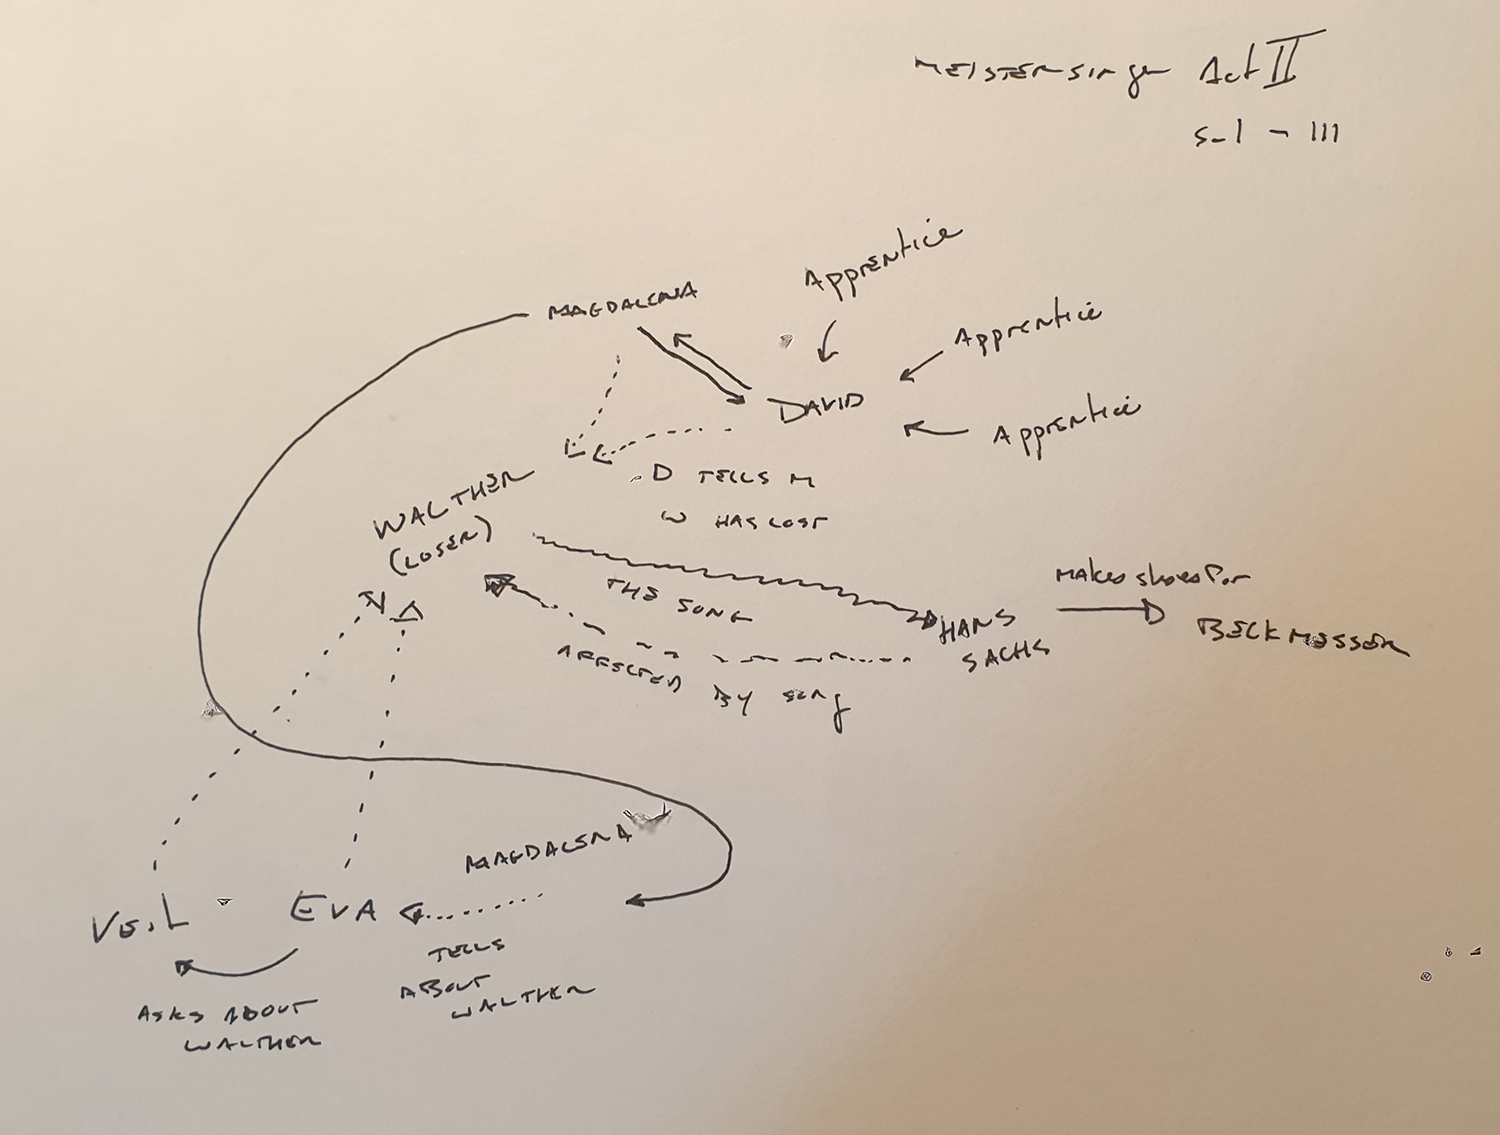 MEISTERSINGER Act II
S-I - III
Apprentice
MAGDALENA
Apprentice
DAVID
Apprentice
D TELLS M
W HAS LOST
WALTHER
(LOSER)
THE SONG
MAKES SHOES FOR
HANS
SACHS
BECKMESSER
AFFECTED BY SONG
MAGDALENA
EVA
TELLS
ABOUT
WALTHER
ASKS ABOUT
WALTHER